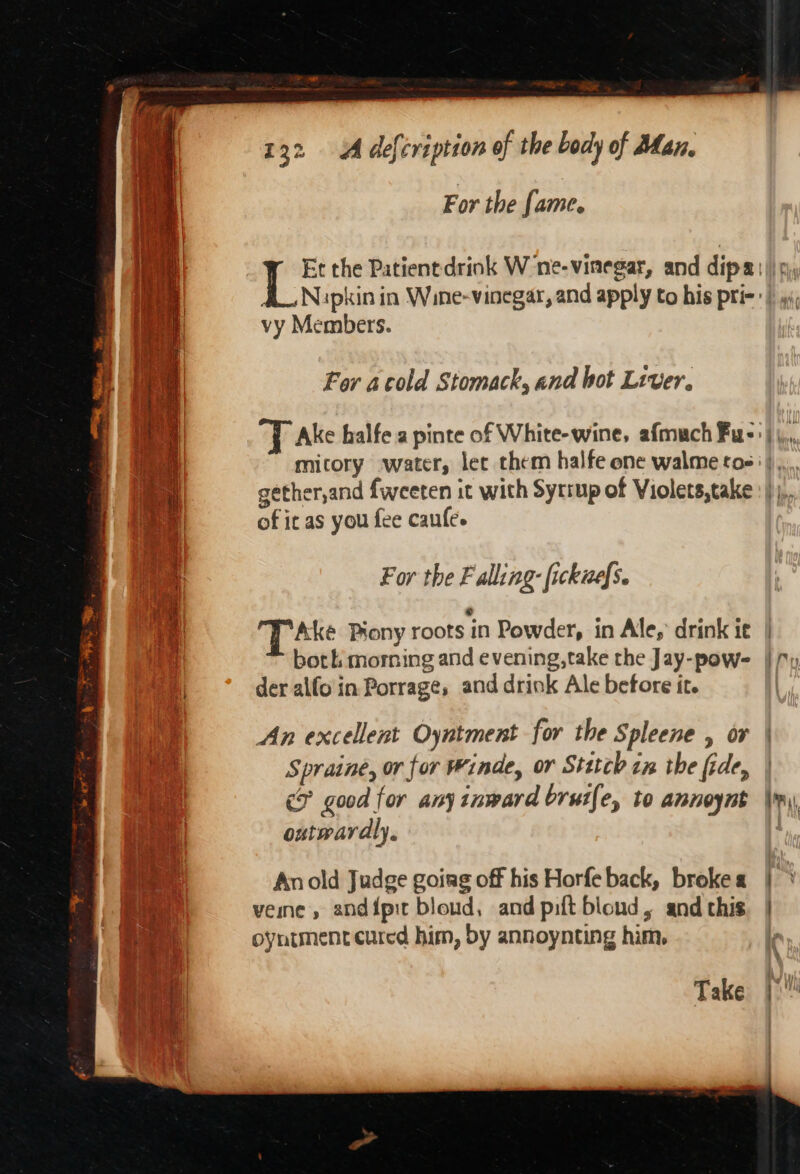 132 A deſcription of the body of Man.
For the ſame.
LEt the Patient drink Wine-vinegar, and dip a
Napkin in Wine-vinegar, and apply to his pri-
vy Members.
For a cold Stomack, and hot Liver.
TAke halfe a pinte of White-wine, aſmuch Fu-
mitory water, let them halfe one walme to-
gether,and ſweeten it with Syrrup of Violets,take
of it as you ſee cauſe.
For the Falling-ſickneſs.
TAke Piony roots in Powder, in Ale, drink it
both morning and evening,take the Jay-pow-
der alſo in Porrage, and drink Ale before it.
An excellent Oyntment for the Spleene , or
Spraine, or for Winde, or Stitch in the ſide,
& good for any inward bruiſe, to annoynt
outwardly.
An old Judge going off his Horſe back, broke a
veine , and ſpit bloud, and piſt bloud , and this
oyntment cured him, by annoynting him.
Take